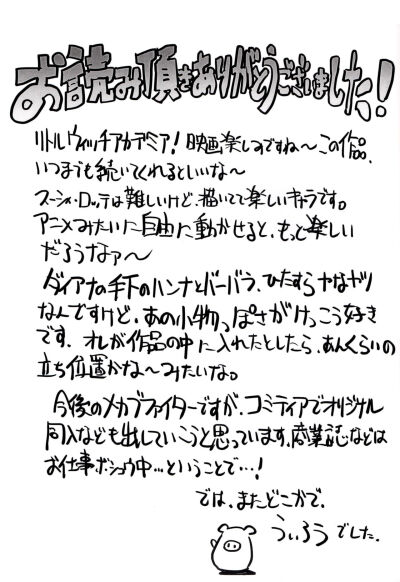 お読み頂きありがとうございました!
リトルウィッチアカデミア! 映画楽しみですね〜この作品、
いつまでも続いてくれるといいな〜
スーシィ・ロッテは難しいけど、描いてて楽しいキャラです。
アニメみたいに自由に動かせると、もっと楽しい
だろうなァ〜
ダイアナの手下のハンナとバーバラ、ひたすらヤなヤツ
なんですけど、あの小物っぽさがけっこう好き
です。オレが作品の中に入れたとしたら、あんくらいの
立ち位置かな〜みたいな。
今後のメカブファイターですが、コミティアでオリジナル
同人なども出していこうと思っています。商業誌などは
お仕事ボシュウ中…ということで…!
では、またどこかで。
ういろうでした。